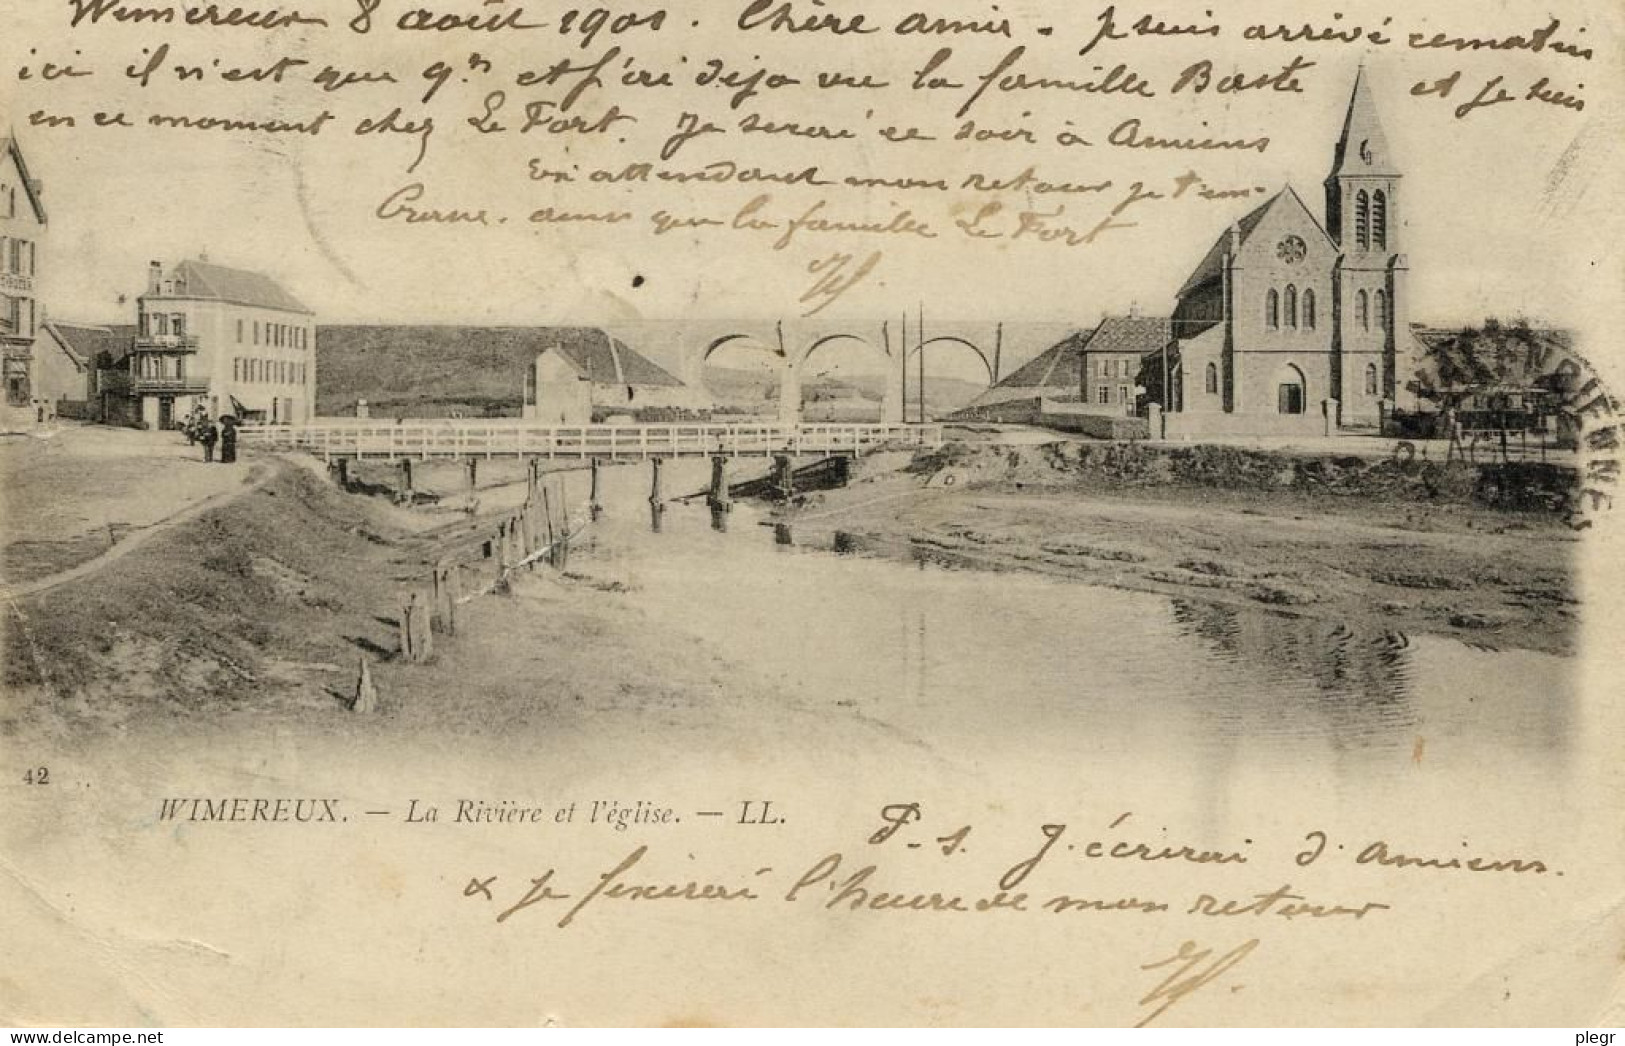 Wimereux 8 août 1901. Chère amie - Je suis arrivé ce matin
ici il n'est que 9h et j'ai déja vu la famille Baste et je suis
en ce moment chez Le Fort. Je serai ce soir à Amiens
En attendant mon retour je t'em-
brasse. ainsi que la famille Le Fort
VALENCIENNES
42
WIMEREUX. — La Rivière et l'église. — LL.
P.S. J'écrirai d'Amiens.
& je fixerai l'heure de mon retour
plegr